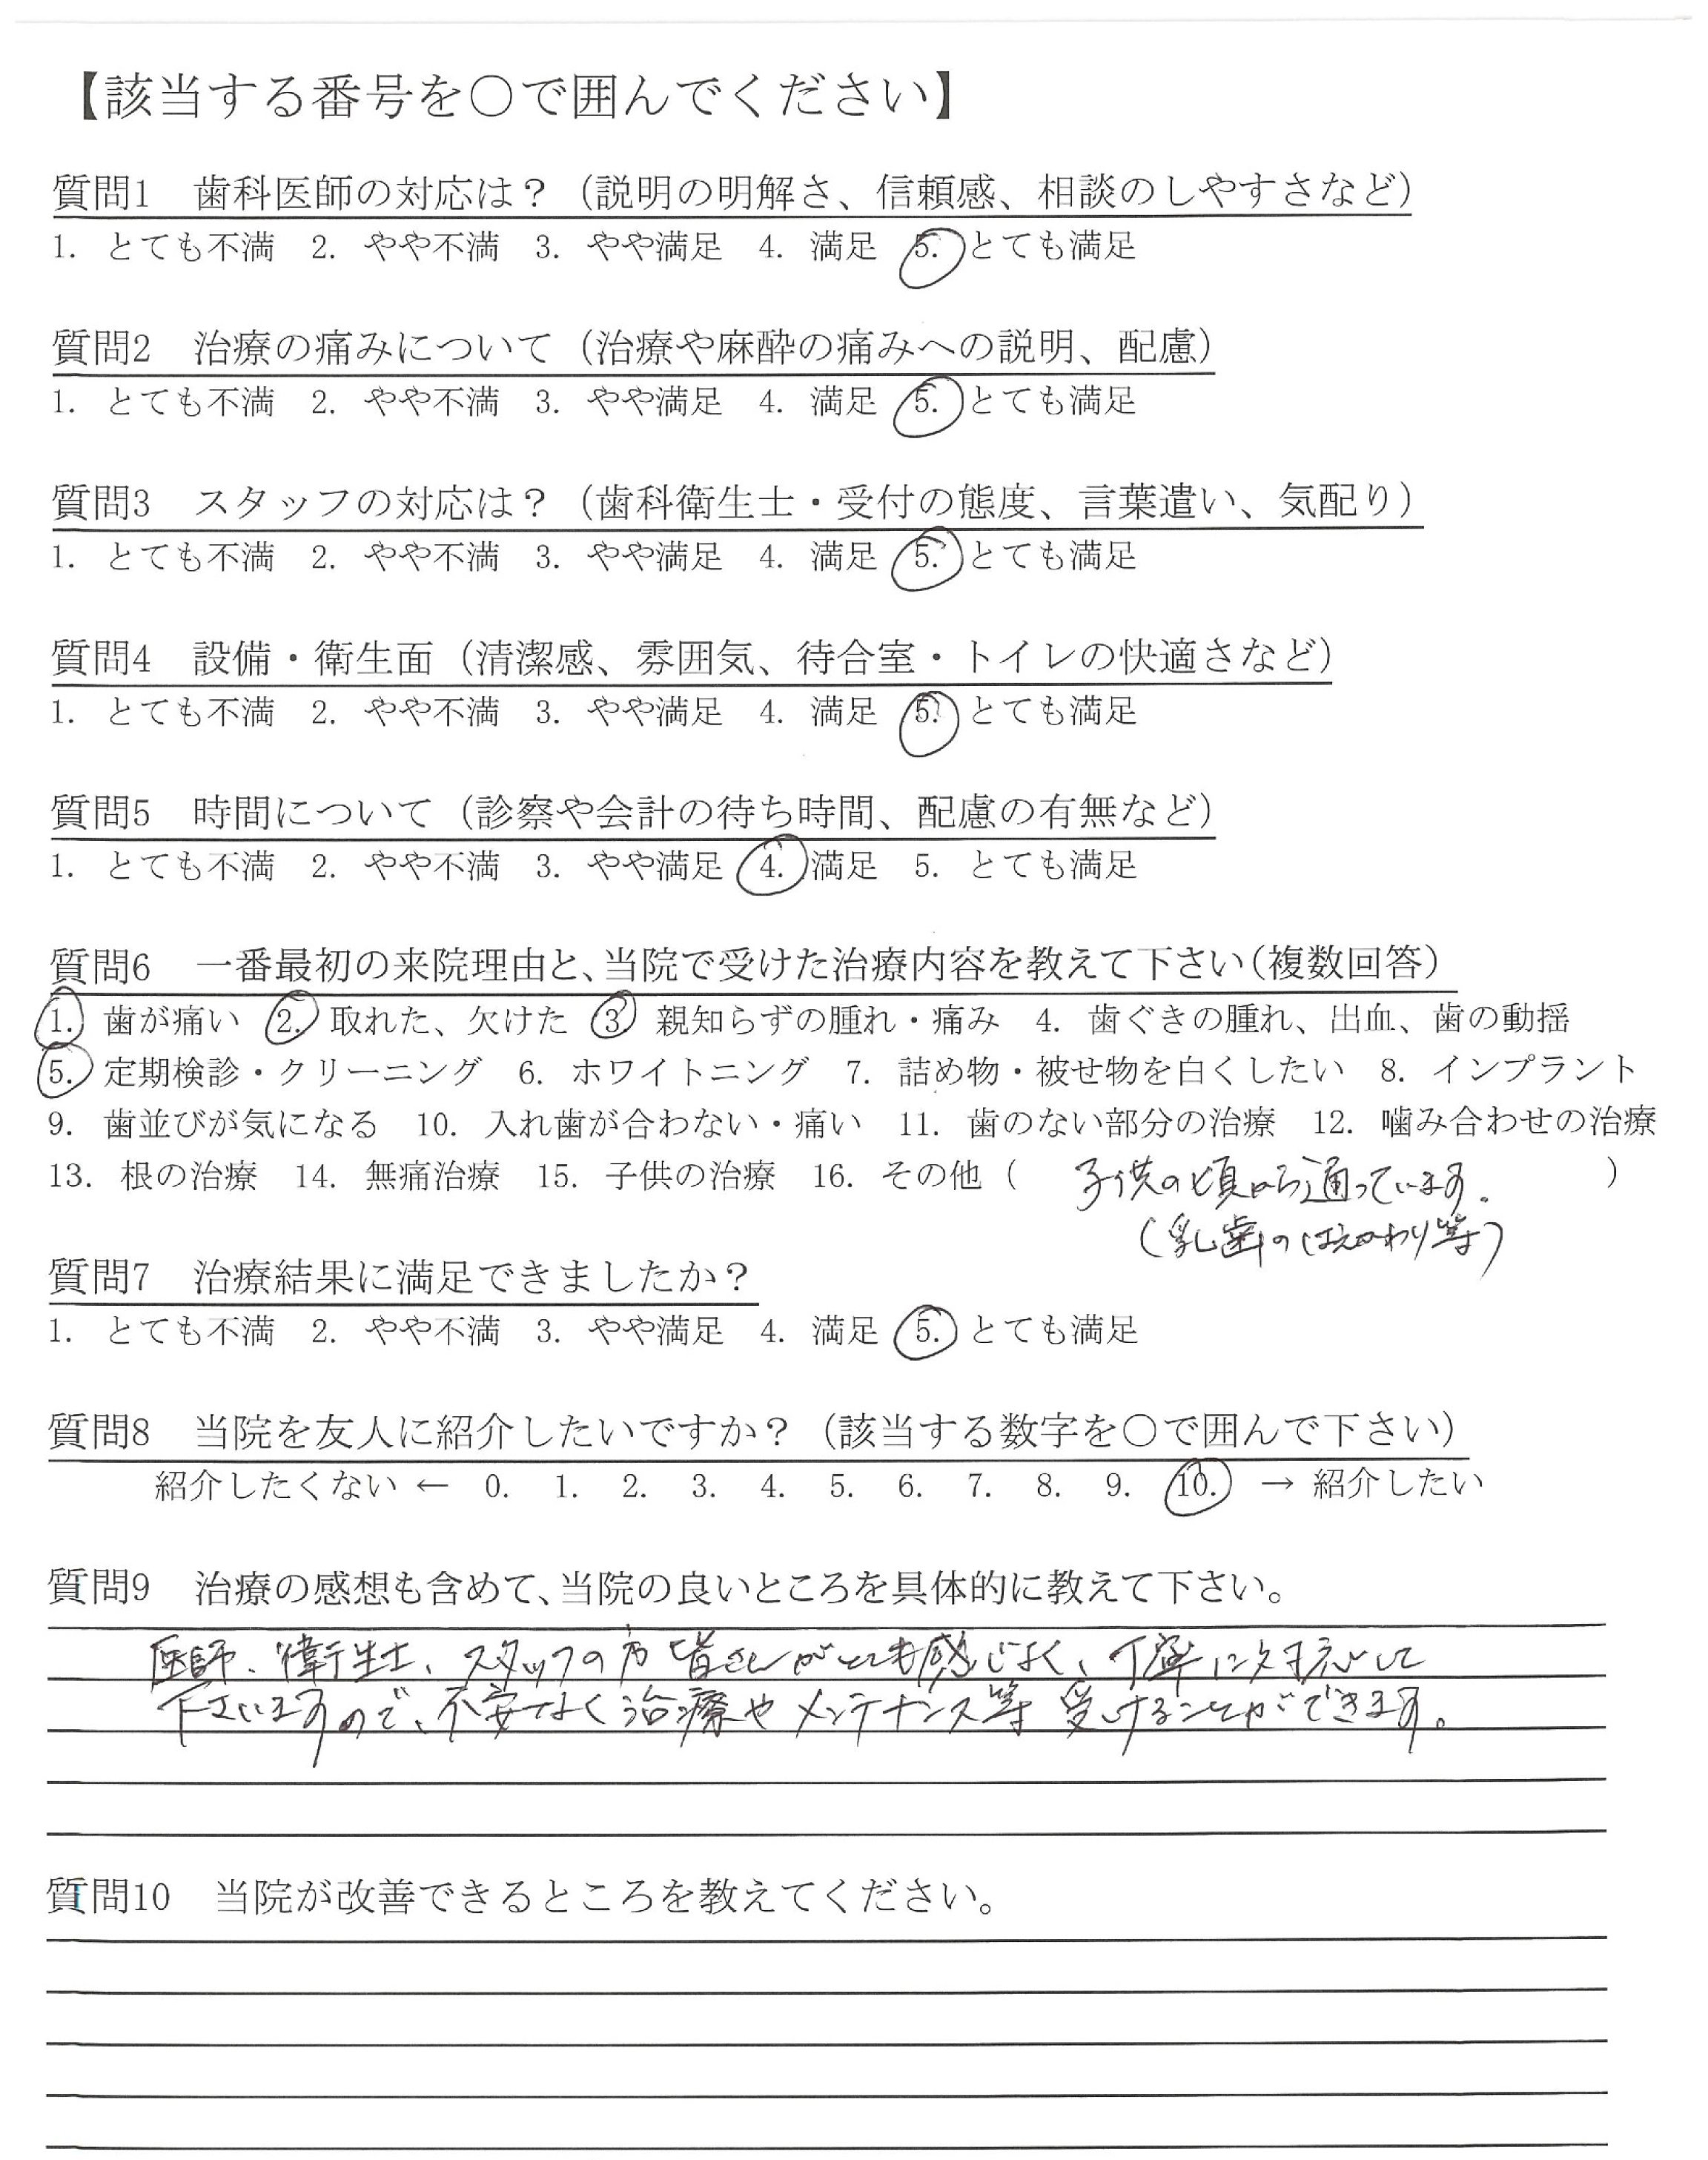 【該当する番号を○で囲んでください】
質問1　歯科医師の対応は？（説明の明解さ、信頼感、相談のしやすさなど）
1. とても不満　2. やや不満　3. やや満足　4. 満足　5. とても満足
質問2　治療の痛みについて（治療や麻酔の痛みへの説明、配慮）
1. とても不満　2. やや不満　3. やや満足　4. 満足　5. とても満足
質問3　スタッフの対応は？（歯科衛生士・受付の態度、言葉遣い、気配り）
1. とても不満　2. やや不満　3. やや満足　4. 満足　5. とても満足
質問4　設備・衛生面（清潔感、雰囲気、待合室・トイレの快適さなど）
1. とても不満　2. やや不満　3. やや満足　4. 満足　5. とても満足
質問5　時間について（診察や会計の待ち時間、配慮の有無など）
1. とても不満　2. やや不満　3. やや満足　4. 満足　5. とても満足
質問6　一番最初の来院理由と、当院で受けた治療内容を教えて下さい（複数回答）
1. 歯が痛い　2. 取れた、欠けた　3. 親知らずの腫れ・痛み　4. 歯ぐきの腫れ、出血、歯の動揺
5. 定期検診・クリーニング　6. ホワイトニング　7. 詰め物・被せ物を白くしたい　8. インプラント
9. 歯並びが気になる　10. 入れ歯が合わない・痛い　11. 歯のない部分の治療　12. 噛み合わせの治療
13. 根の治療　14. 無痛治療　15. 子供の治療　16. その他（　子供の頃から通っています。　）
（乳歯のはえかわり等）
質問7　治療結果に満足できましたか？
1. とても不満　2. やや不満　3. やや満足　4. 満足　5. とても満足
質問8　当院を友人に紹介したいですか？（該当する数字を○で囲んで下さい）
紹介したくない ← 0.　1.　2.　3.　4.　5.　6.　7.　8.　9.　10.　→ 紹介したい
質問9　治療の感想も含めて、当院の良いところを具体的に教えて下さい。
医師、衛生士、スタッフの方皆さんがとても感じよく、丁寧に対応して
下さいますので、不安なく治療やメンテナンス等受けることができます。
質問10　当院が改善できるところを教えてください。